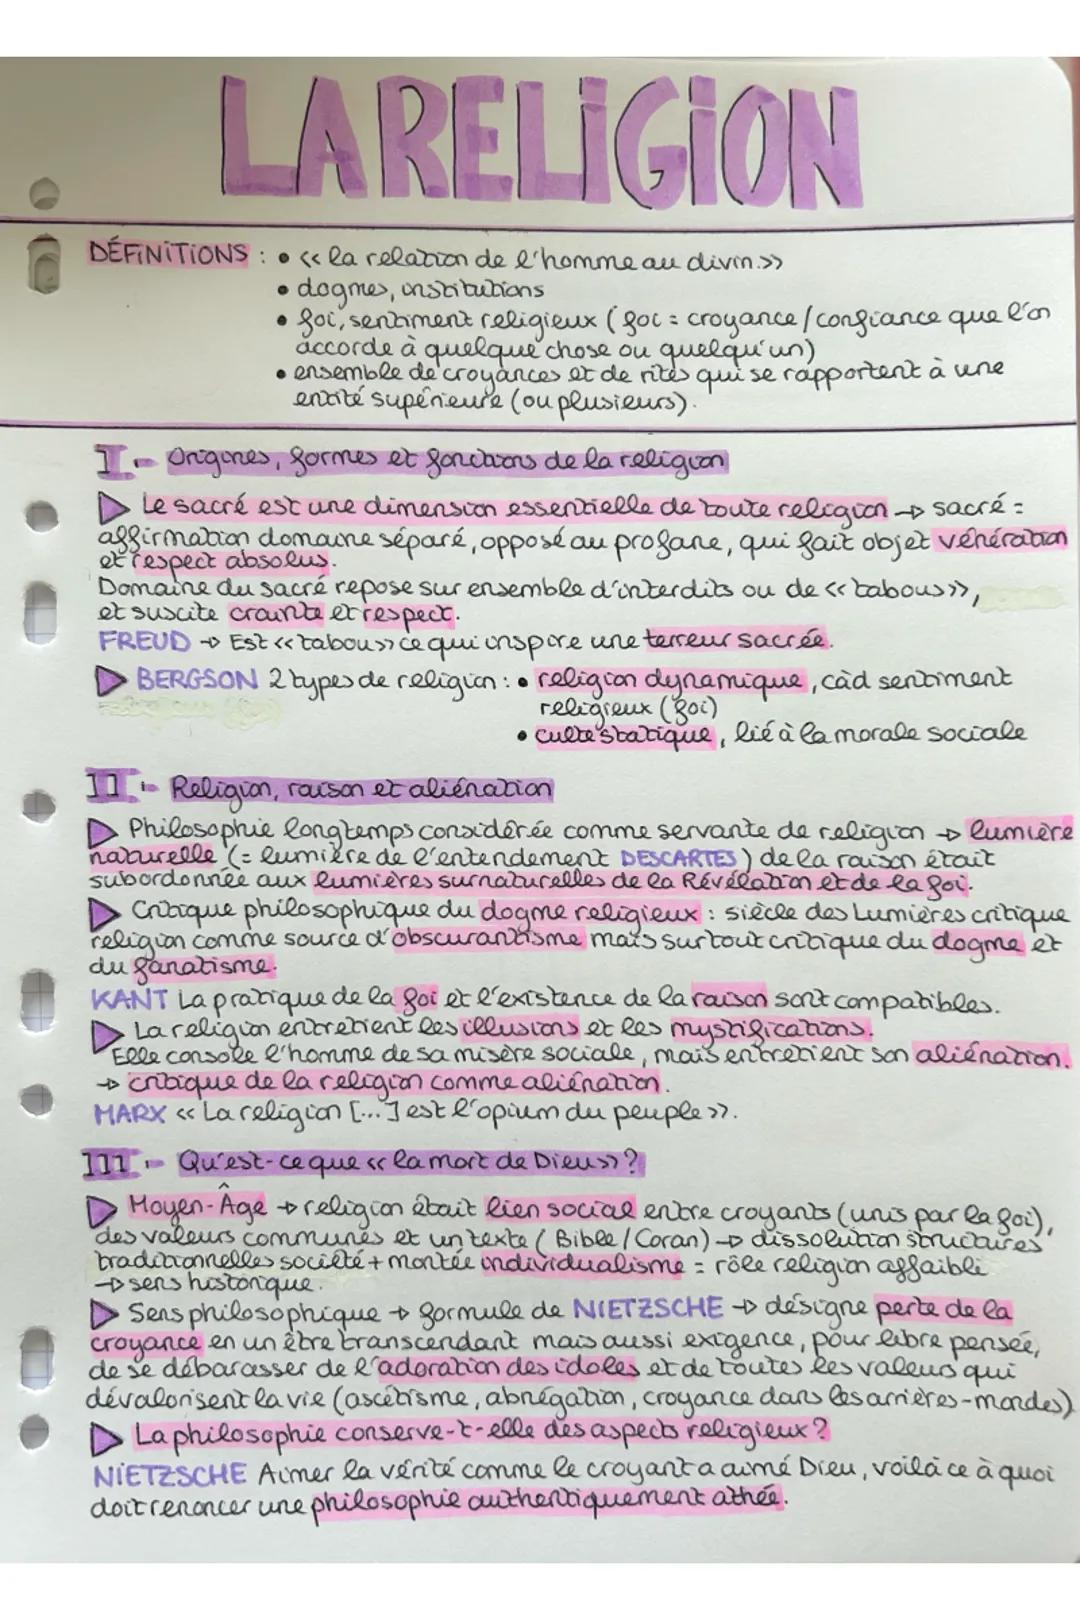 LA RELIGION
DÉFINITIONS : • << la relation de l'homme au divin.>>
• dogmes, institutions
• foi, sentiment religieux ( foi = croyance / confiance que l'on
accorde à quelque chose ou quelqu'un)
• ensemble de croyances et de rites qui se rapportent à une
entité supérieure (ou plusieurs).
I - Origines, formes et fonctions de la religion
▶ Le sacré est une dimension essentielle de toute religion → sacré =
affirmation domaine séparé, opposé au profane, qui fait objet vénération
et respect absolus.
Domaine du sacré repose sur ensemble d'interdits ou de << tabous>>,
et suscite crainte et respect.
FREUD → Est << tabou>> ce qui inspire une terreur sacrée.
▶ BERGSON 2 types de religion : • religion dynamique, càd sentiment
religieux (foi)
• culte statique, lié à la morale sociale
II - Religion, raison et aliénation
▶ Philosophie longtemps considérée comme servante de religion → lumière
naturelle (= lumière de l'entendement DESCARTES) de la raison était
subordonnée aux lumières surnaturelles de la Révélation et de la foi.
▶ Critique philosophique du dogme religieux : siècle des Lumières critique
religion comme source d'obscurantisme mais surtout critique du dogme et
du fanatisme.
KANT La pratique de la foi et l'existence de la raison sont compatibles.
▶ La religion entretient les illusions et les mystifications.
Elle console l'homme de sa misère sociale, mais entretient son aliénation.
→ critique de la religion comme aliénation.
MARX << La religion [...] est l'opium du peuple >>.
III - Qu'est-ce que << la mort de Dieu>> ?
▶ Moyen-Âge → religion était lien social entre croyants (unis par la foi),
des valeurs communes et un texte ( Bible / Coran) → dissolution structures
traditionnelles société + montée individualisme = rôle religion affaibli
→ sens historique.
▶ Sens philosophique → formule de NIETZSCHE → désigne perte de la
croyance en un être transcendant mais aussi exigence, pour libre pensée,
de se débarasser de l'adoration des idoles et de toutes les valeurs qui
dévalorisent la vie (ascétisme, abnégation, croyance dans les arrières-mondes)
▶ La philosophie conserve-t-elle des aspects religieux ?
NIETZSCHE Aimer la vérité comme le croyant a aimé Dieu, voilà ce à quoi
doit renoncer une philosophie authentiquement athée.